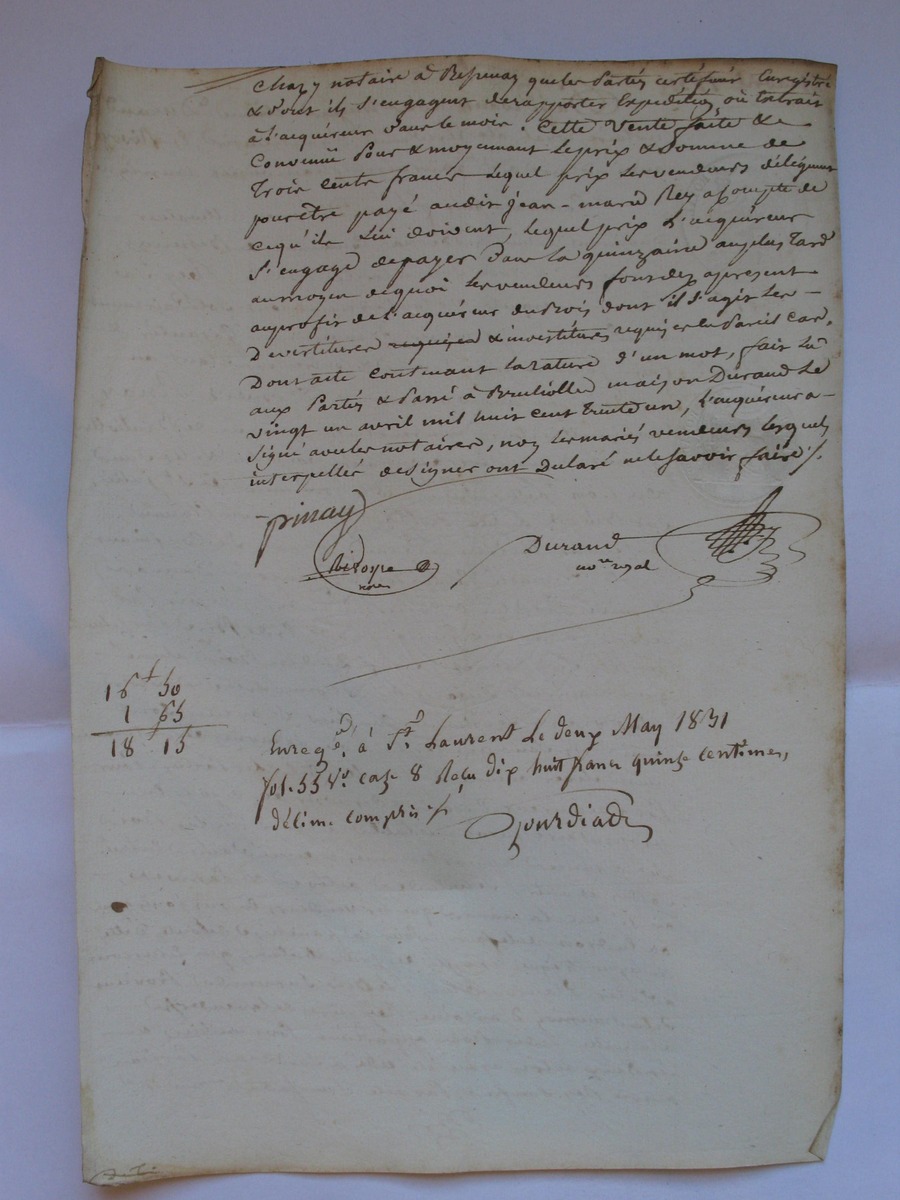 Chazy notaire à Bessenay que les Parties certifient Enregistré
& dont ils s'engagent de rapporter Expédition ou Extrait
à l'acquéreur dans le mois. Cette Vente faite & de
Convenüe Pour & moyennant le prix & Somme de
Trois Cents francs lequel prix les vendeurs délèguent
pour être payé audit jean-marie Rey a Compte de
ce qu'ils lui doivent, lequel prix l'acquéreur
s'engage de payer dans la quinzaine au plus tard
au moyen de quoi les vendeurs font dez a present
au profit de l'acquéreur du Bois dont il s'agit les
Devestitures requises & investitures requises en Pareil Cas.
Dont acte contenant la rature d'un mot, fait lû
aux Parties & Passé à Brullioles maison Durand Le
vingt un avril mil huit cent trente un, L'acquéreur a
signé avec les notaires, non les mariés vendeurs lesquels
interpellés de signer ont déclaré ne le savoir faire /.
pinay
Durand
nore
nore royal
16 f 50
1 65
18 15
Enregé. à St. Laurent Le deux May 1831
fol. 55 Vo. case 8 Reçu dix huit francs quinze centimes,
décime compris /.